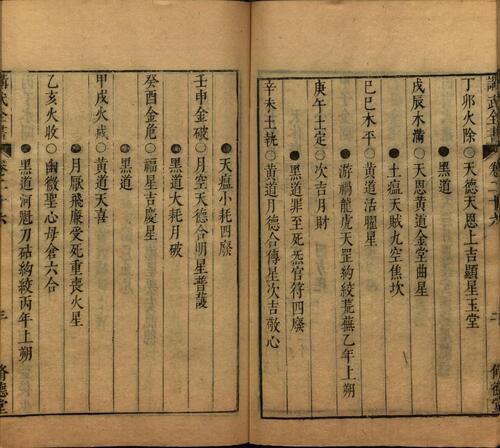 講武全書
卷二十六
二
脩德堂
丁卯火除 ○天德天恩上吉顯星玉堂
●黑道
戊辰水滿 ○天恩黃道金堂曲星
●土瘟天賊九空焦坎
己巳木平 ○黃道活曜星
●游禍龍虎天罡約絞荒蕪乙年上朔
庚午土定 ○次吉月財
●黑道罪至死炁官符四廢
辛未土執 ○黃道月德合傳星次吉敬心
●天瘟小耗四廢
壬申金破 ○月空天德合明星普護
●黑道大耗月破
癸酉金危 ○福星吉慶星
●黑道
甲戌火成 ○黃道天喜
●月厭飛廉受死重喪火星
乙亥火收 ○幽微聖心母倉六合
●黑道河魁刀砧約絞丙年上朔
講武全書
卷二十六
三
脩德堂